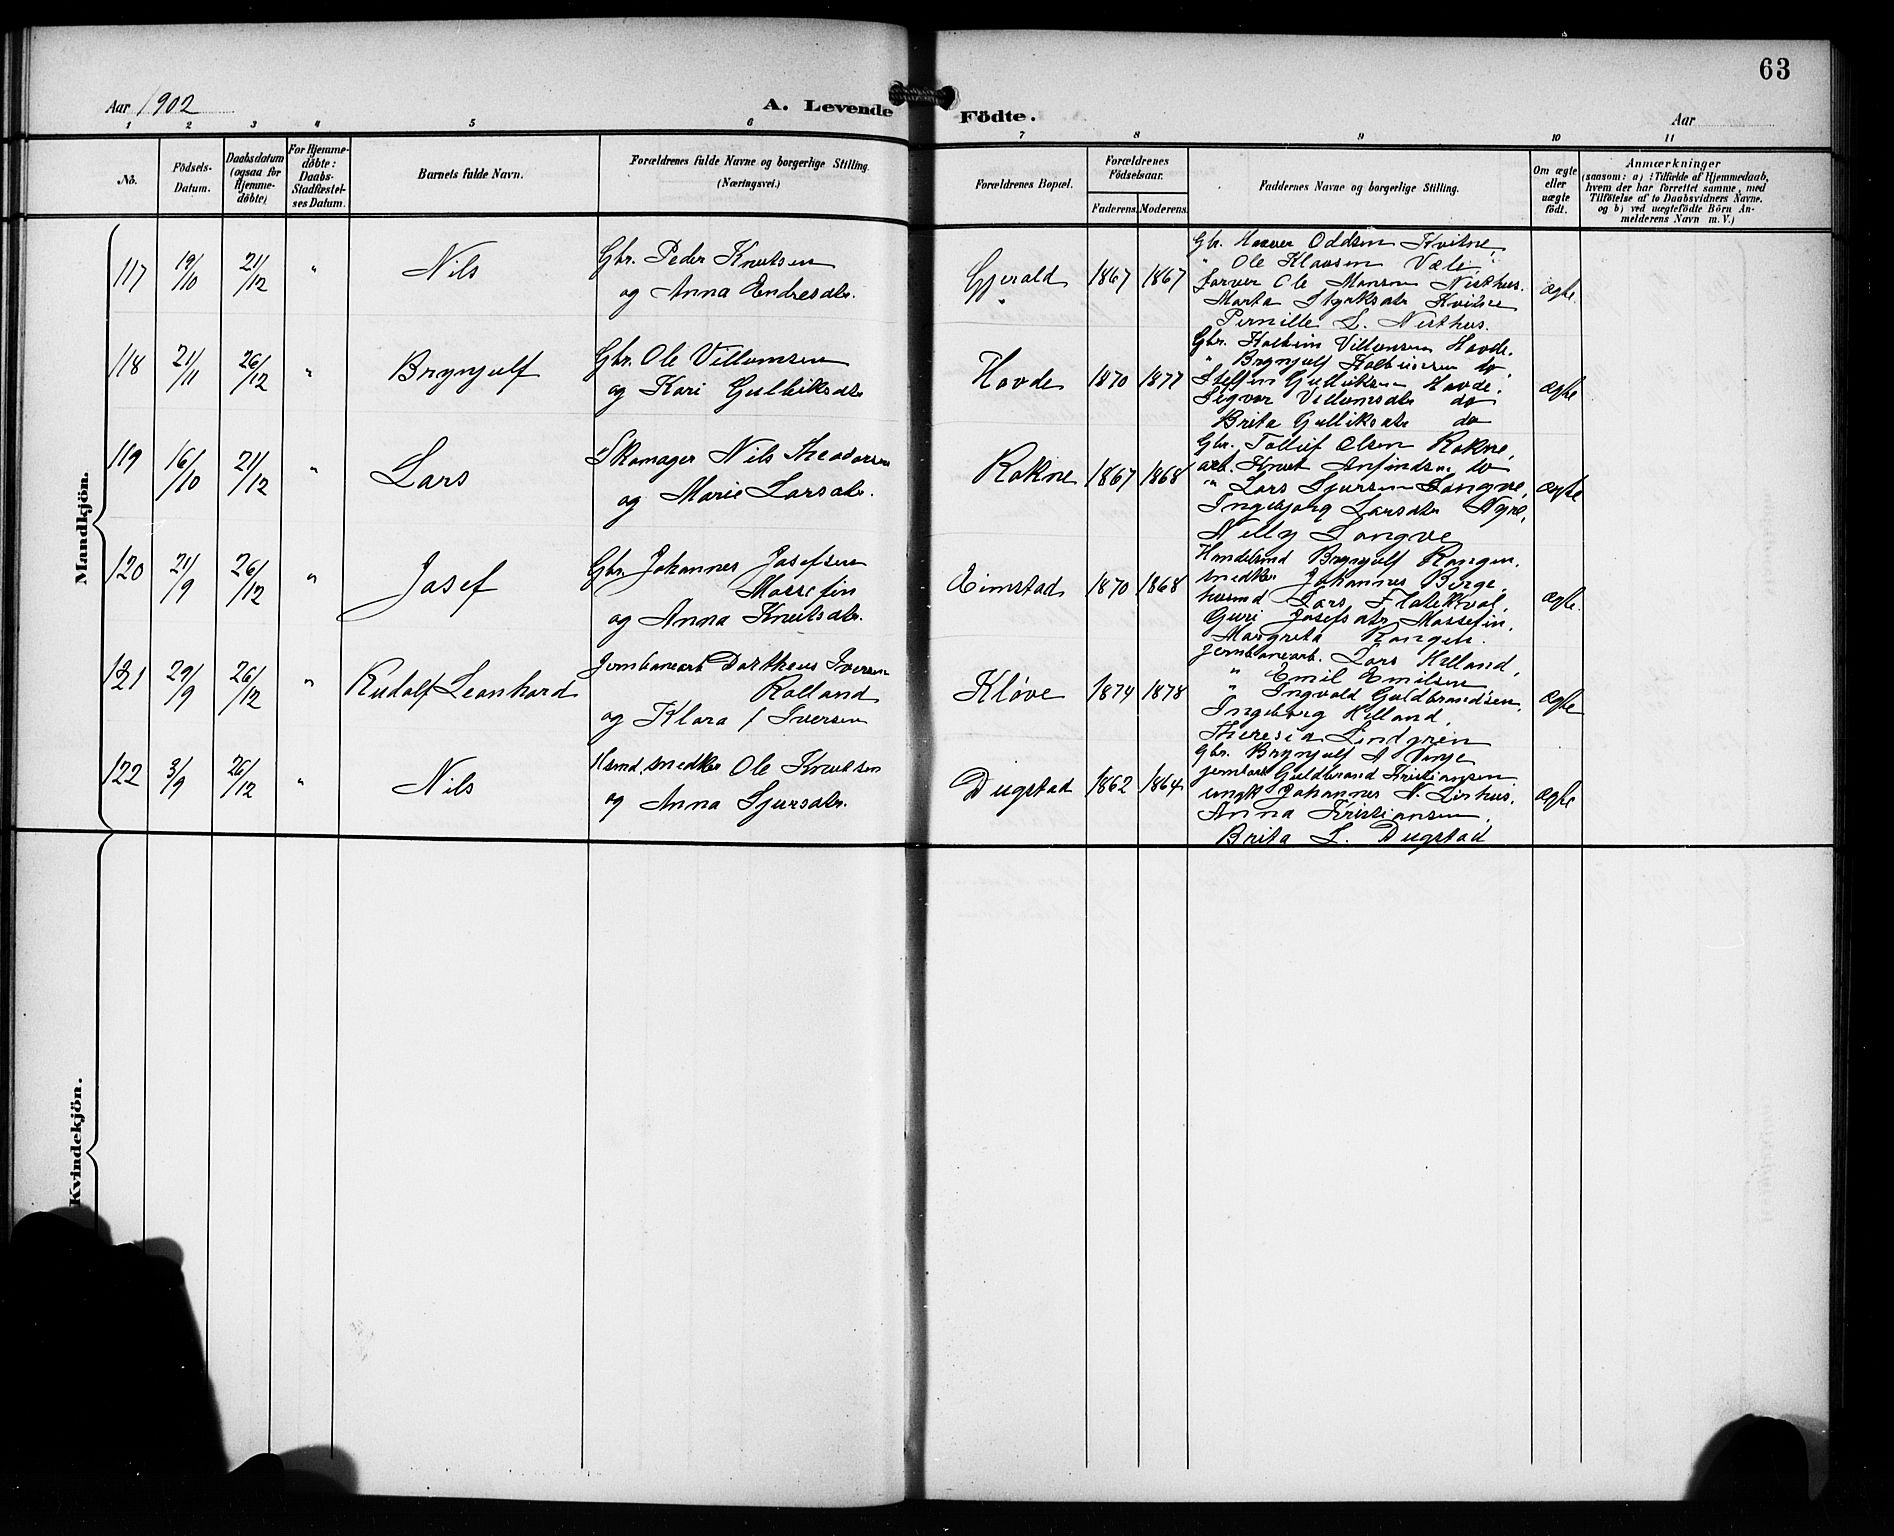 63
Aar 1902
A. Levende Födte.
Aar
1 2 3 4 5 6 7 8 9 10 11
No.
Födsels-Datum.
Daabsdatum (ogsaa for Hjemme-döbte)
For Hjemme-döbte: Daabs-Stadfæstel-ses Datum.
Barnets fulde Navn.
Forældrenes fulde Navne og borgerlige Stilling. (Næringsvei.)
Forældrenes Bopæl.
Forældrenes Födselsaar.
Faderens. Moderens.
Faddernes Navne og borgerlige Stilling.
Om ægte eller uægte födt.
Anmærkninger
(saasom: a) i Tilfælde af Hjemmedaab,
hvem der har forrettet samme, med
Tilföielse af to Daabsvidners Navne.
og b) ved uægtefödte Börn An-
melderens Navn m. V.)
Mandkjön.
117 19/10 21/12 " Nils
Gbr. Peder Knutsen
og Anna Endresdtr.
Gjerald 1867 1867
Gbr. Haaver Oddsen Kvitne,
" Ole Klausen Væle,
Farver Ole Monsen Nesthus.
Marta Styrksdtr Kvitne
Pernille L. Nesthus.
ægte
118 21/11 26/12 " Brynjulf
Gbr. Ole Villumsen
og Kari Gulleiksdtr
Hovde 1870 1877
Gbr. Kolbein Villumsen Hovde.
" Brynjulf Kolbeinsen do,
Steffen Gulleiksen Hovde,
Sigvor Villumsdtr do
Brita Gulleiksdtr do
ægte
119 16/10 21/12 " Lars
Skomager Nils Theodorsen
og Marie Larsdtr.
Rokne 1867 1868
Gbr. Tollief Olsen Rokne,
arb. Knut Anfindsen do
" Lars Sjursen Longve,
Ingebjorg Larsdtr Nyre,
Nelly Longve
ægte
120 21/9 26/12 " Josef
Gbr. Johannes Josefsen
Mossefin
og Anna Knutsdtr.
Eimstad 1870 1868
Handelsmd Brynjulf Rongen.
snedker Johannes Berge,
husmd Lars Flatekval,
Guri Josefsdtr Mossefin,
Margreta Rongen.
ægte.
121 29/9 26/12 " Rudolf Leonhard
Jernbanearb Dortheus Iversen
Rolland
og Klara f Iversen
Kløve 1874 1878
jernbanearb. Lars Helland,
" Emil Emilsen
" Ingvald Guldbrandsen,
Ingeborg Helland,
Theresia Lindgren
ægte
122 3/9 26/12 " Nils
Hsmd, snedker Ole Knutsen
og Anna Sjursdtr.
Dugstad 1862 1864
Gbr. Brynjulf A Vinje
jernbarb Guldbrand Kristiansen
ungk Johannes N. Lirhus,
Anna Kristiansen,
Brita L. Dugstad
ægte
Kvindekjön.